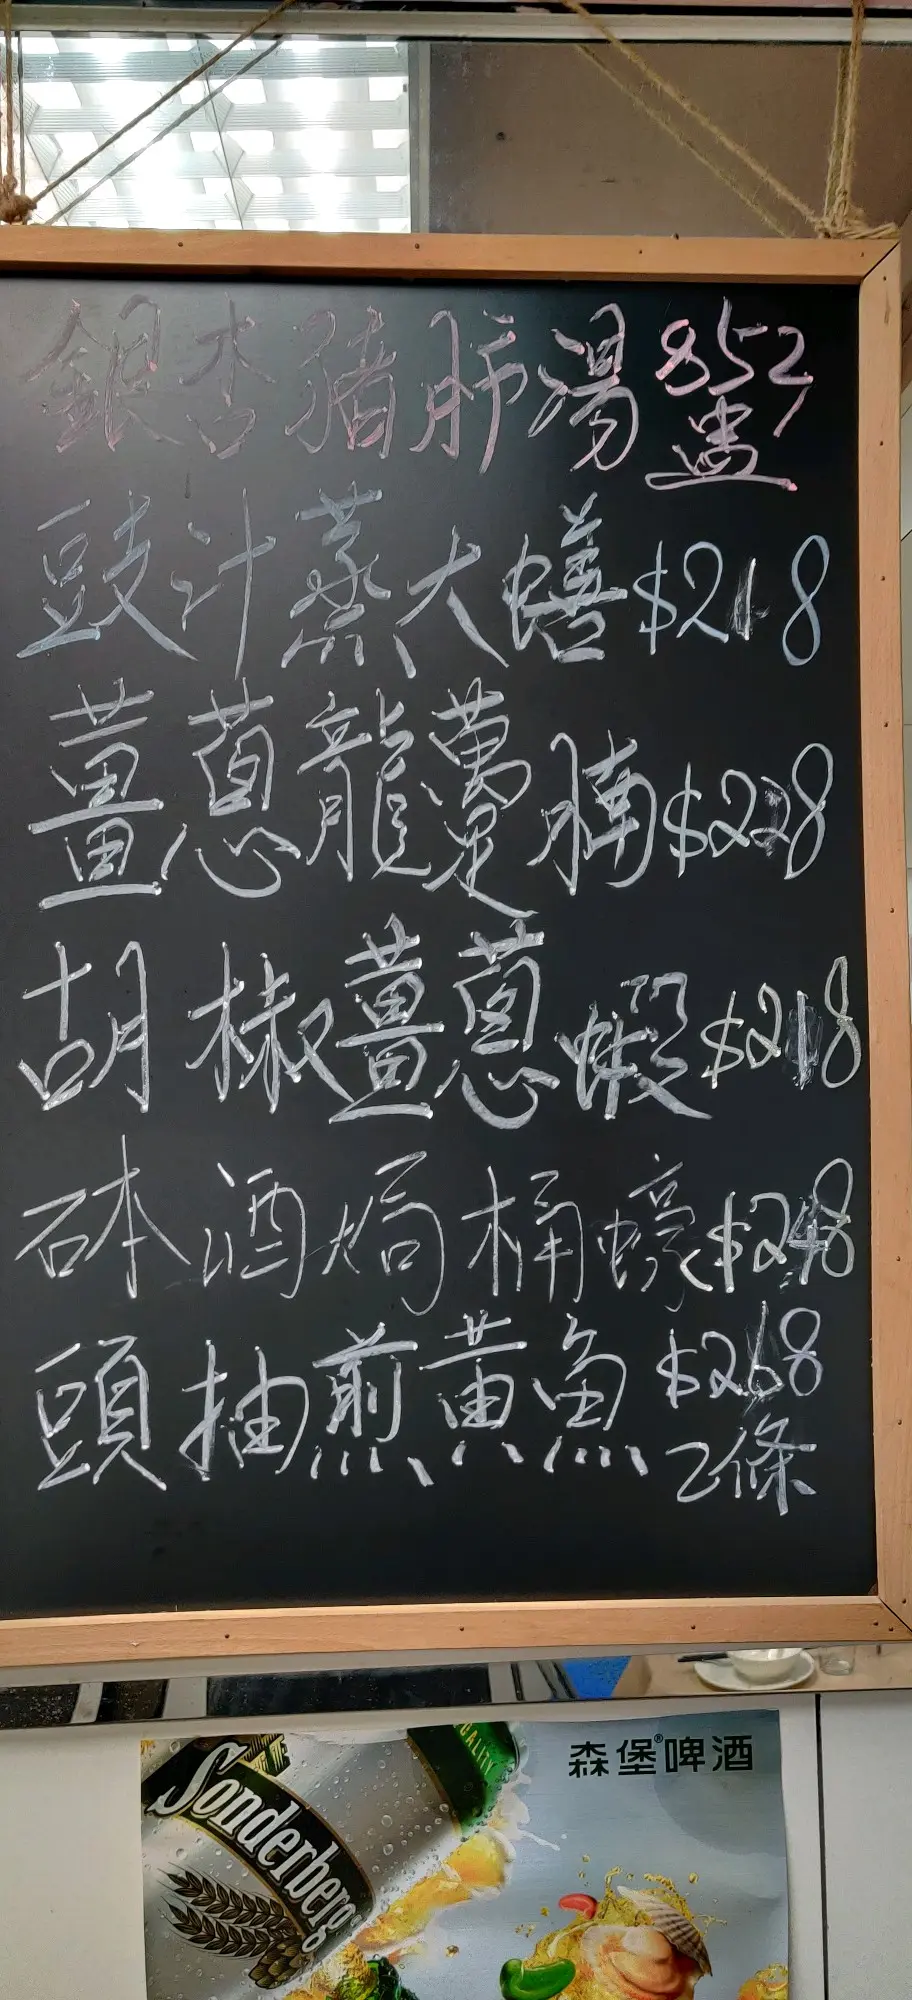 銀杏猪肺湯 $52
盅
豉汁蒸大鱔 $218
薑葱龍躉腩 $228
胡椒薑葱蝦 $218
砵酒焗桶蠔 $248
頭抽煎黄魚 $268
2條
森堡®啤酒
Sonderberg
QUALITY